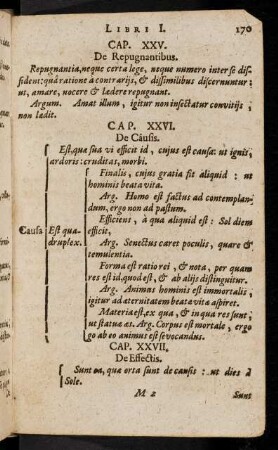 LIBRI I. 170
CAP. XXV.
De Repugnantibus.
Repugnantia, neque certa lege, neque numero inter se dis-
sident: quâ ratione à contrarijs, & dissimilibus discernuntur:
ut, amare, nocere & ledere repugnant.
Argum. Amat illum, igitur non insectatur convitijs,
non ladit.
CAP. XXVI.
De Causis.
Est, quæ sua vi efficit id, cujus est causa: ut ignis,
ardoris: cruditas, morbi.
Finalis, cujus gratia fit aliquid: ut
hominis beata vita.
Arg. Homo est factus ad contemplan-
dum, ergo non ad pastum.
Efficiens, à qua aliquid est: Sol diem
efficit,
Causa Est qua-
druplex.
Arg. Senectus caret poculis, quare &
temulentia.
Forma est ratio rei, & nota, per quam
res est id, quod est, & ab alijs distinguitur.
Arg. Animus hominis est immortalis,
igitur ad æternitatem beatæ vitæ aspiret.
Materia est, ex qua, & in qua res sunt;
ut statuæ æs. Arg. Corpus est mortale, ergo
ab eo animus est sevocandus.
CAP. XXVII.
De Effectis.
Sunt ea, quæ orta sunt de causis: ut dies à
Sole.
M 2 Sunt